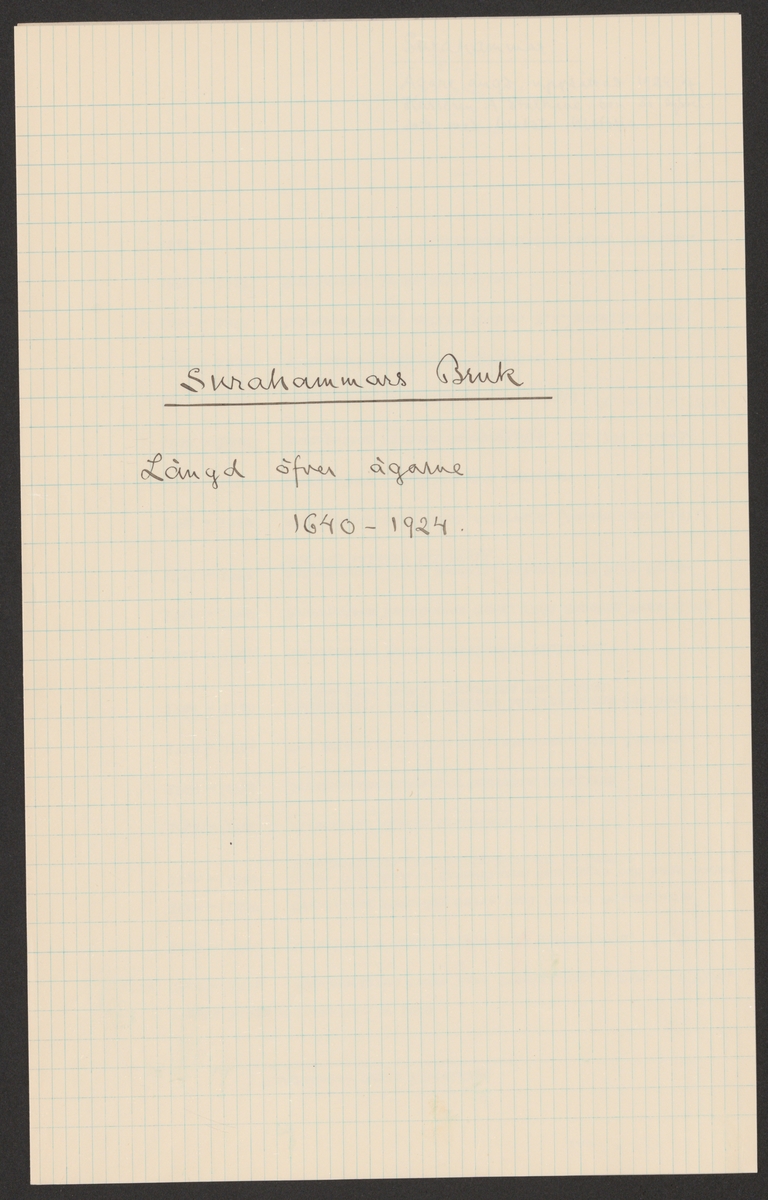 Surahammars Bruk
Längd öfver ägarne
1640 - 1924.